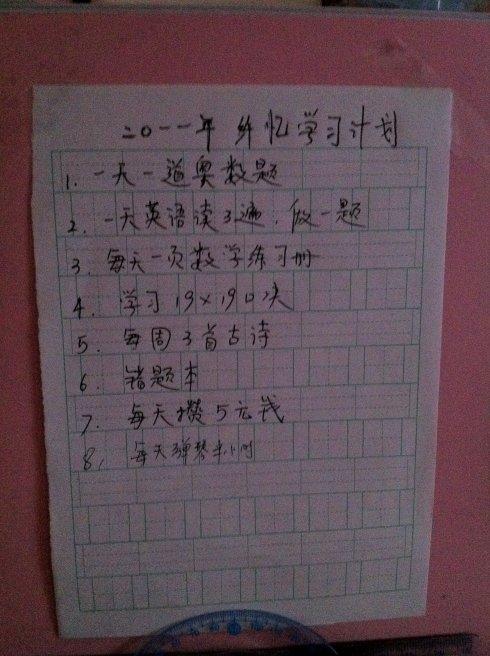 二〇一一年 乡忆学习计划
1. 一天一道奥数题
2. 一天英语读3遍，做一题
3. 每天一页数学练习册
4. 学习19×19口决
5. 每周3首古诗
6. 错题本
7. 每天攒5元钱
8. 每天弹琴半小时